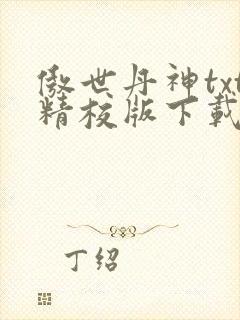 傲世丹神txt
精校版下载
丁绍